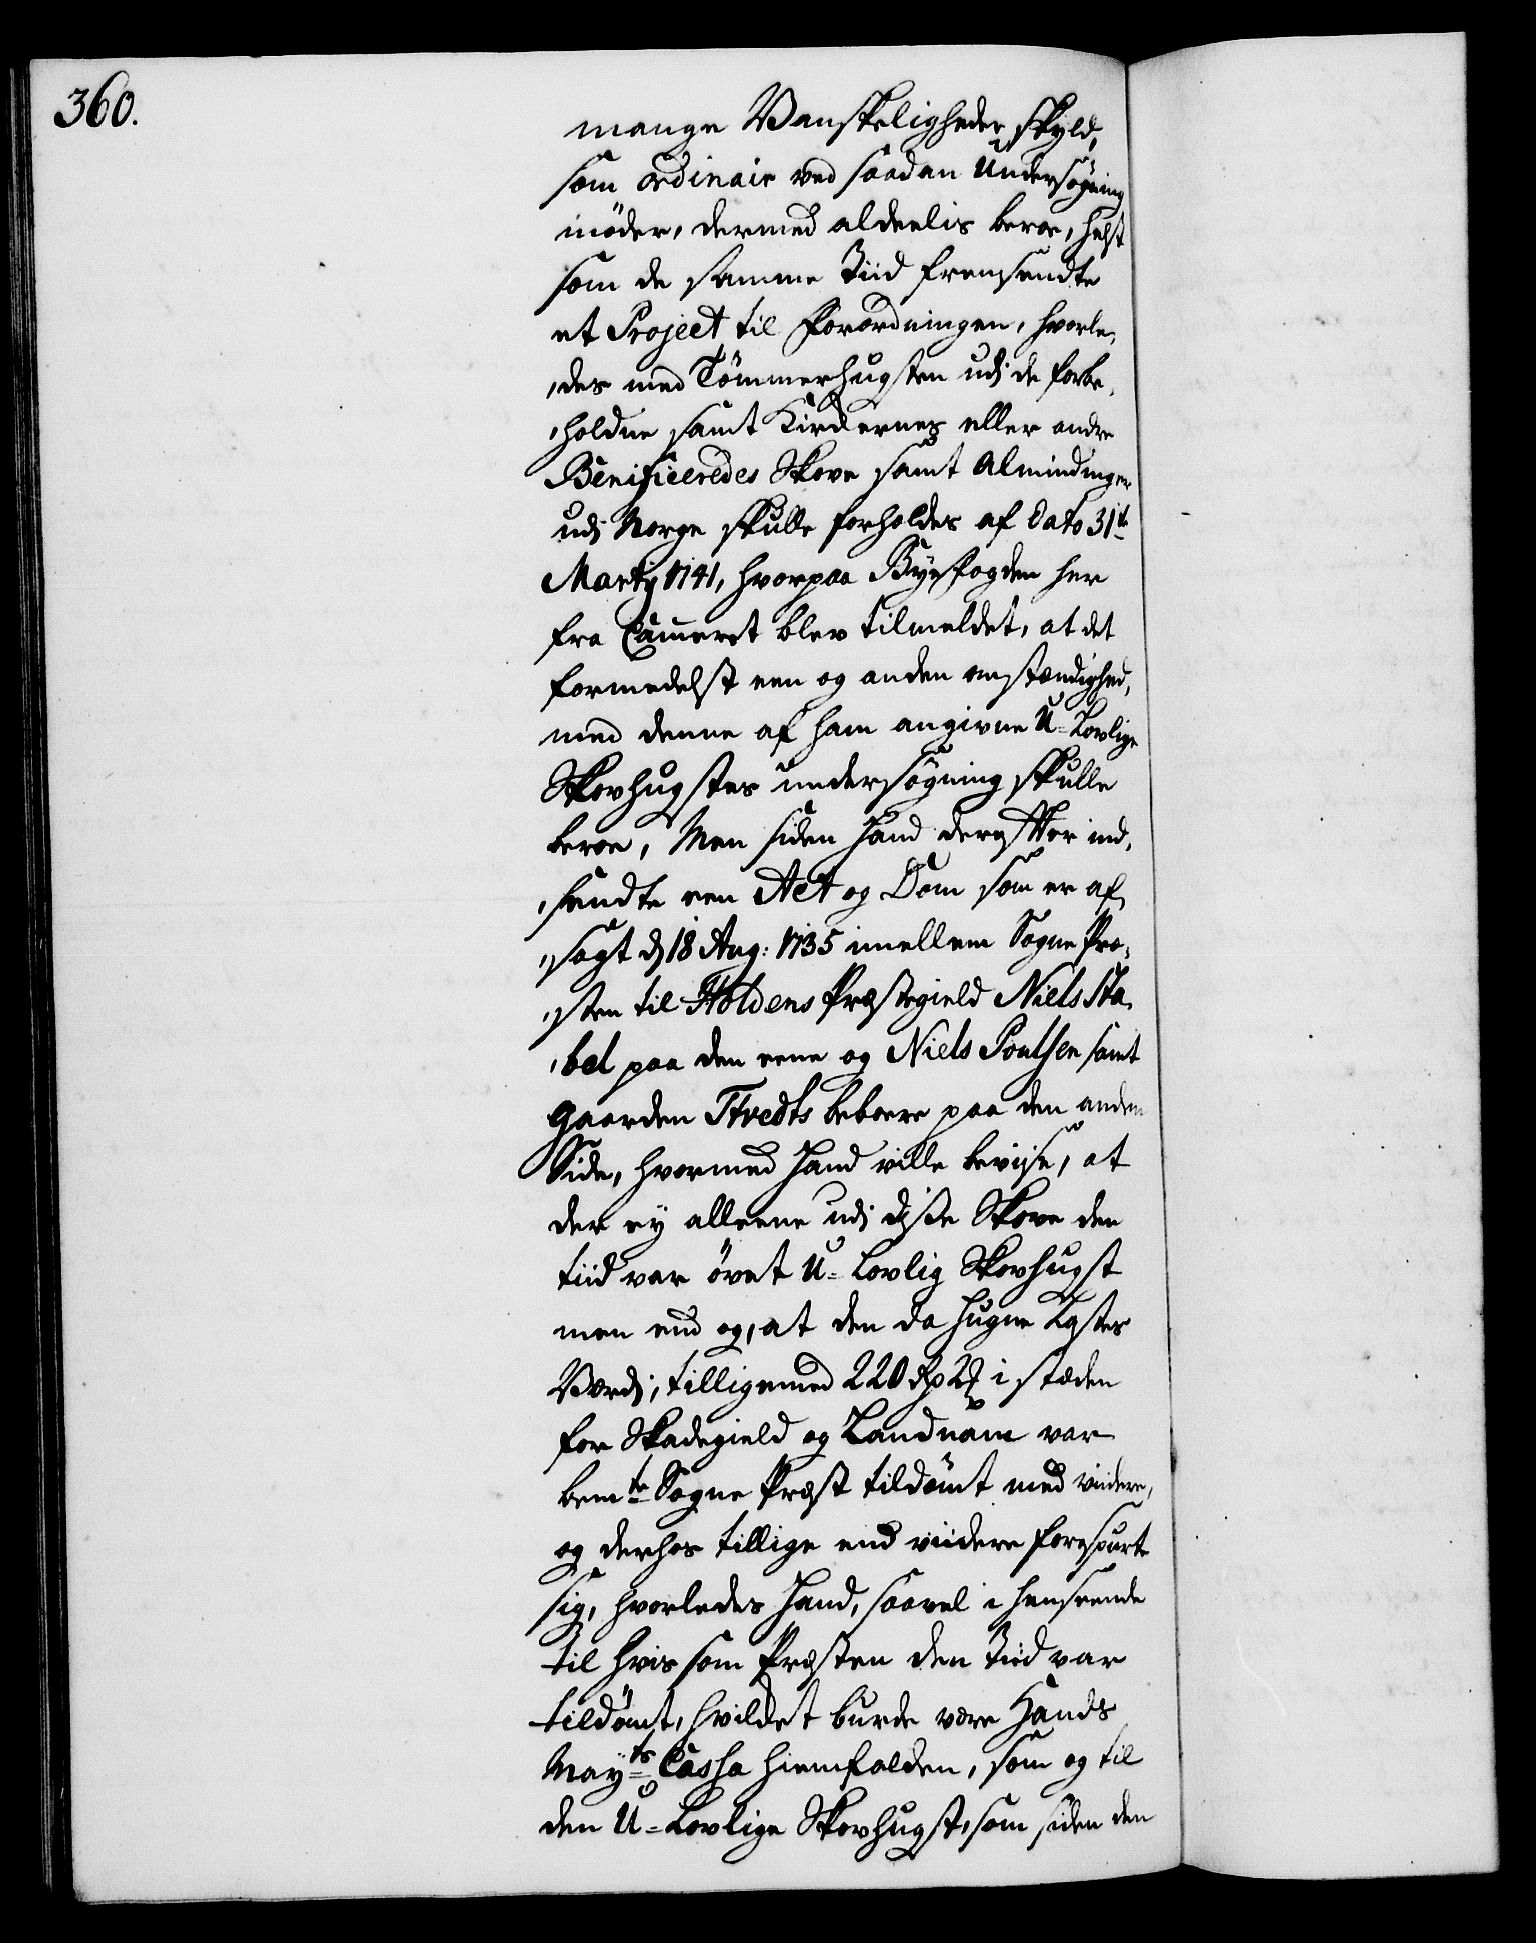 360.
mange Vanskeligheder skyld,
som ordinair ved saadan Undersøgning
möder, dermed aldeelis beroe, helst
som de samme Tiid fremsendte
et Project til Forordningen, hvorle,
,des med Tömmerhugsten udj de forbe,
,holdne samt Kirckernes eller andre
Benificeredes Skove samt Almindinger
udj Norge skulle forholdes af dato 31te
Martij 1741, hvorpaa Byefogden her
fra Cammeret blev tilmeldet, at det
formedelst een og anden omstændighed,
med denne af ham angivne U-Lovlige
Skovhugstes undersögning skulle
beroe, Men siden Hand derefter ind,
,sendte een Act og Dom som er af,
,sagt d 18 Aug: 1735 imellem Sogne Præ,
,sten til Holdens Præstegield Niels Sta,
,bel paa den eene og Niels Poulsen samt
gaarden Tvedts beboere paa den anden
Side, hvormed Hand ville bevise, at
der ey alleene udj disse Skove den
tiid var övet U-Lovlig Skovhugst
men end og, at den da hugne Lastes
Værdj, tilligemed 220 Rd 2 i stæden
for Skadegield og Landnam var
bemte Sogne Præst tildömt med viidere,
og derhos tillige end viidere forespurte
sig, hvorledes Hand, saavel i henseende
til hvis som Præsten den Tiid var
tildömt, hvilcket burde være Hands
Mayts Cassa hiemfalden, som og til
den U-Lovlige Skovhugst, som siden den